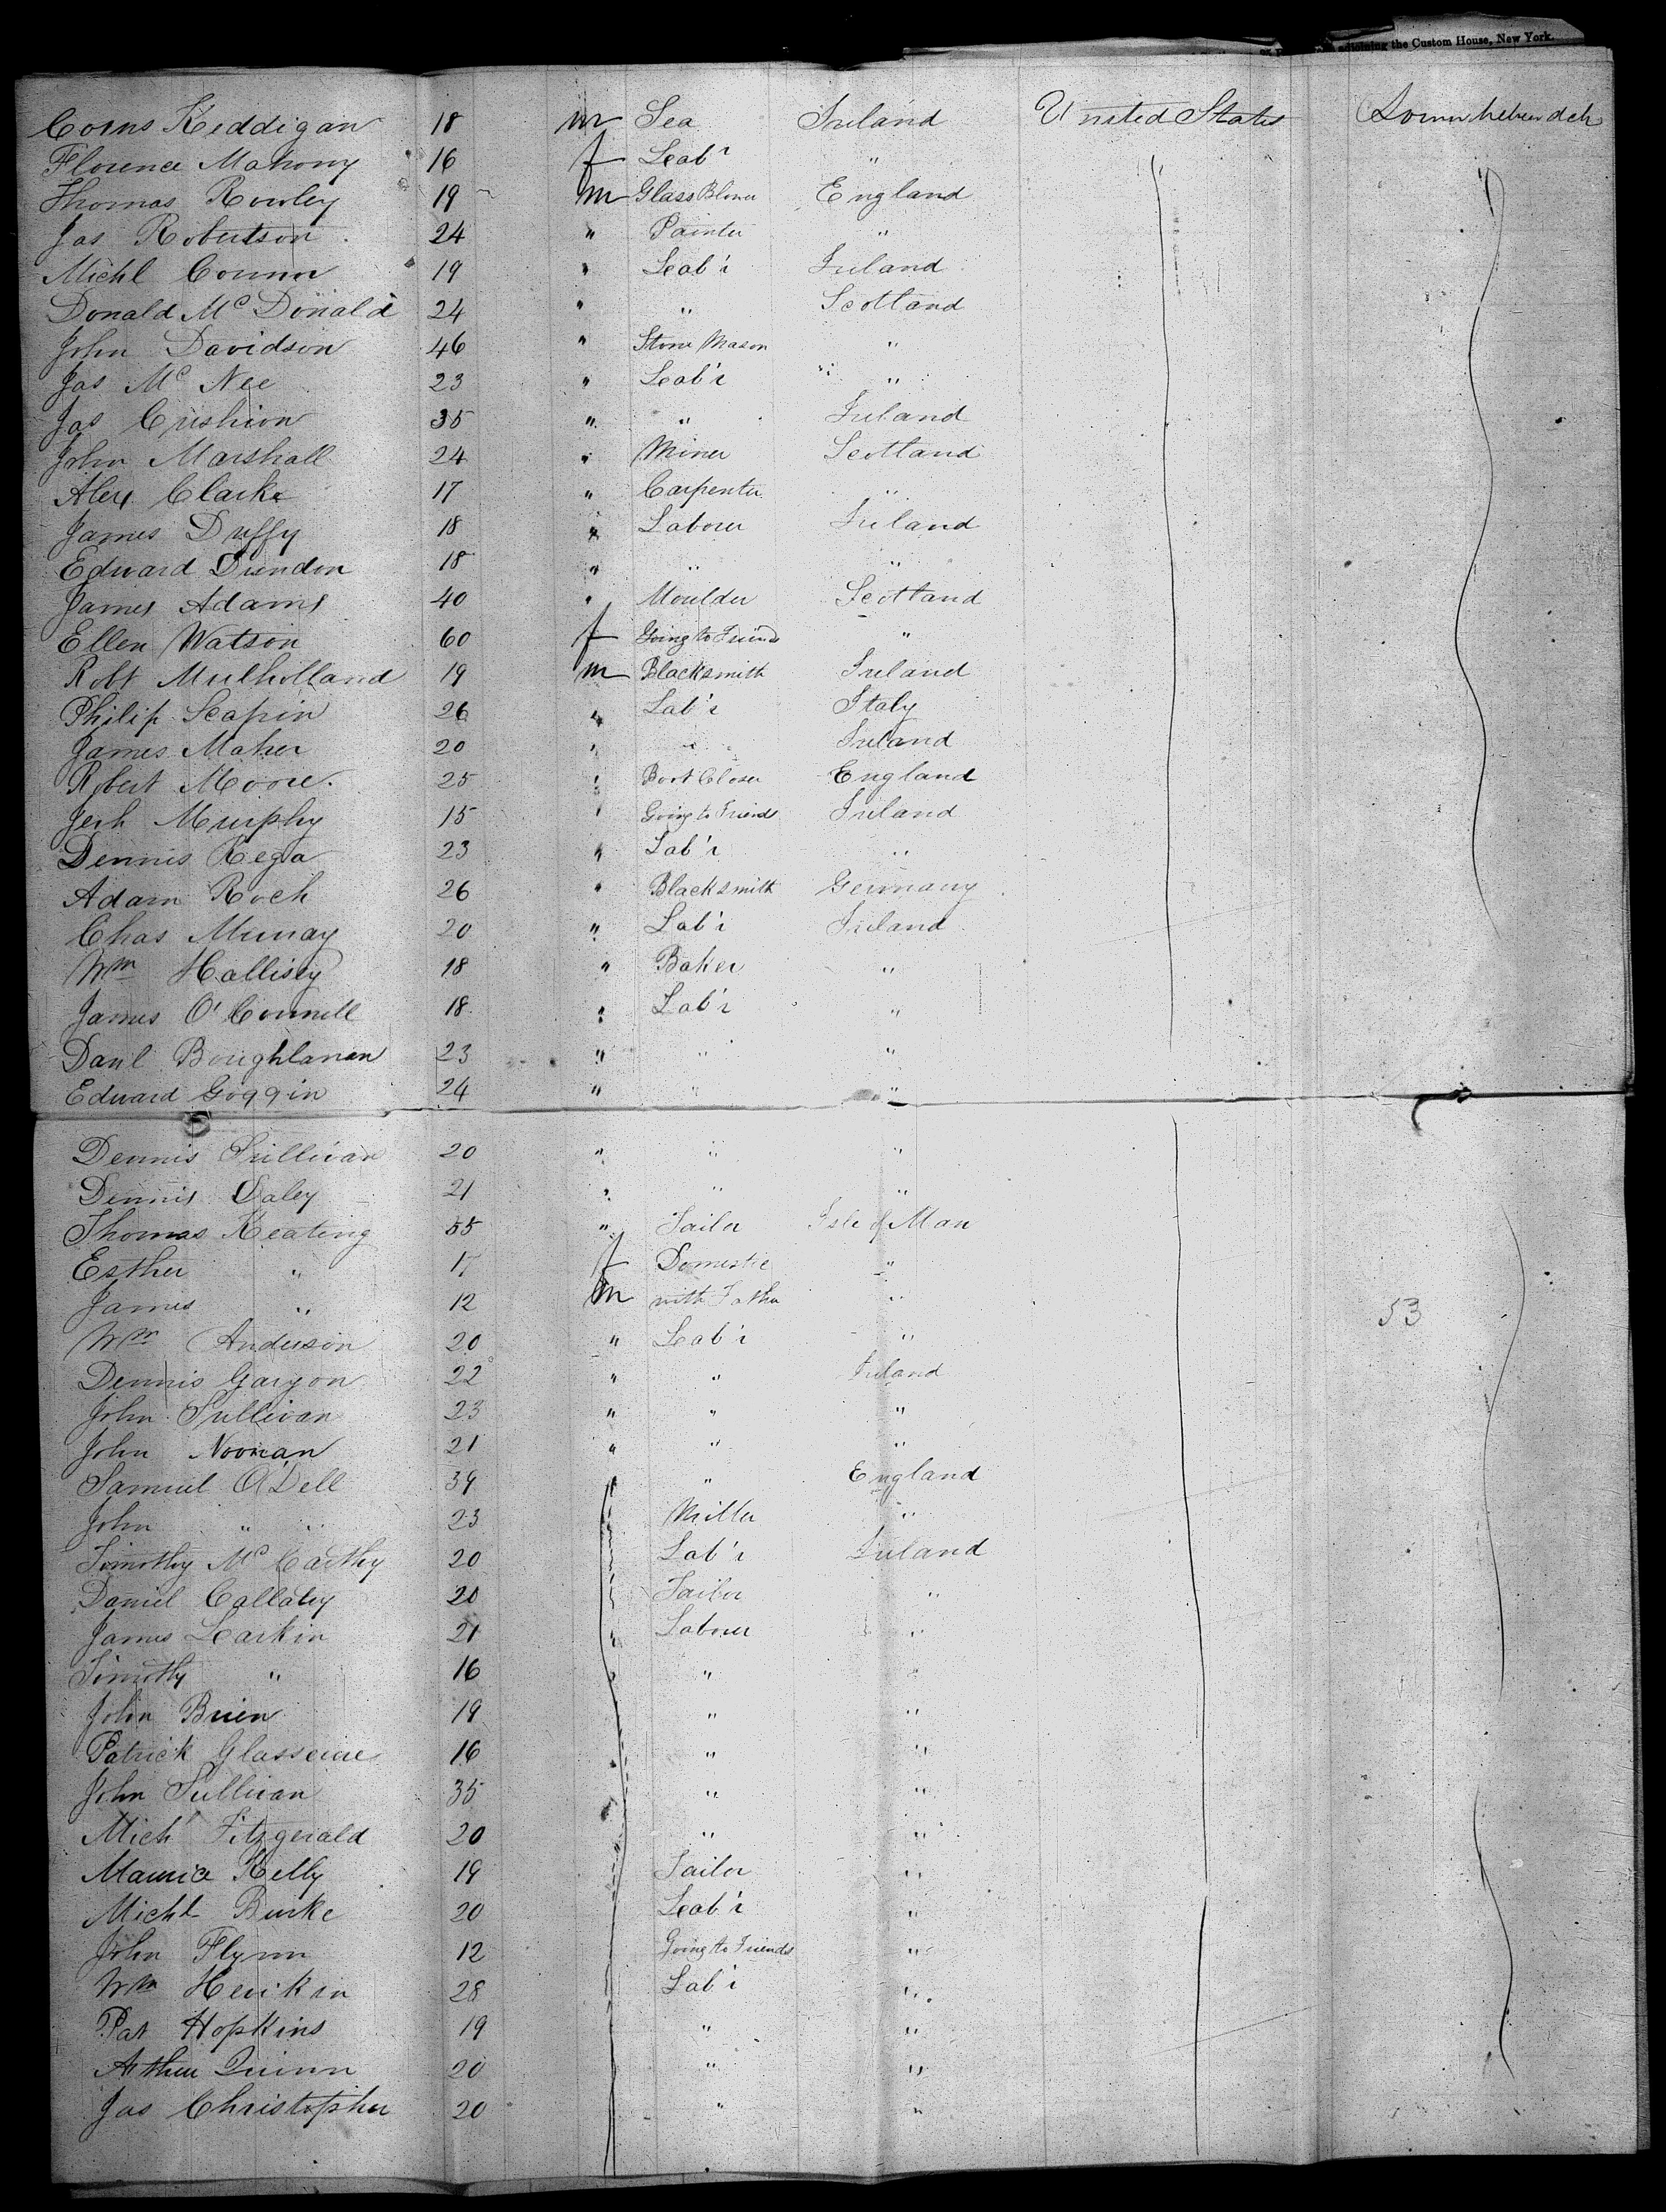 adjoining the Custom House, New York.
Corns Keddigan 18 m Sea Ireland United States
Florence Mahony 16 f Lab'r "
Thomas Rowley 19 m Glass Blower England
Jas Robertson 24 " Painter "
Michl Connor 19 " Lab'r Ireland
Donald McDonald 24 " " Scotland
John Davidson 46 " Stone Mason "
Jas Mc Nee 23 " Lab'r "
Jas Cushion 35 " " Ireland
John Marshall 24 " Miner Scotland
Alex Clarke 17 " Carpenter "
James Duffy 18 " Laborer Ireland
Edward Dundon 18 " " "
James Adams 40 " Moulder Scotland
Ellen Watson 60 f Going to Friends "
Robt Mulholland 19 m Blacksmith Ireland
Philip Scapin 26 " Lab'r Italy
James Maher 20 " " Ireland
Robert Moore 25 " Boot Closer England
Jerh Murphy 15 " Going to Friends Ireland
Dennis Rega 23 " Lab'r "
Adam Roch 26 " Blacksmith Germany
Chas Murray 20 " Lab'r Ireland
Wm Hallisey 18 " Baker "
James O'Connell 18 " Lab'r "
Danl Boughlanan 23 " " "
Edward Goggin 24 " " "
Dennis Sullivan 20 " " "
Dennis Daley 21 " " "
Thomas Keating 55 " Tailor Isle of Man
Esther " 17 f Domestic "
James " 12 m with Father " 53
Wm Anderson 20 " Lab'r "
Dennis Garyon 22 " " Ireland
John Sullivan 23 " " "
John Noonan 21 " " "
Samuel O'Dell 39 " " England
John " " 23 Miller "
Timothy McCarthy 20 Lab'r Ireland
Daniel Callaley 20 Tailor "
James Larkin 21 " Laborer "
Timothy " 16 " "
John Brien 19 " "
Patrick 16 " "
John Sullivan 35 " "
Michl Fitzgerald 20 " "
Maurice Kelly 19 Tailor "
Michl Burke 20 Lab'r "
John Flynn 12 Going to Friends "
Wm 28 Lab'r "
Pat Hopkins 19 " "
Arthur Quinn 20 " "
Jas Christopher 20 " "